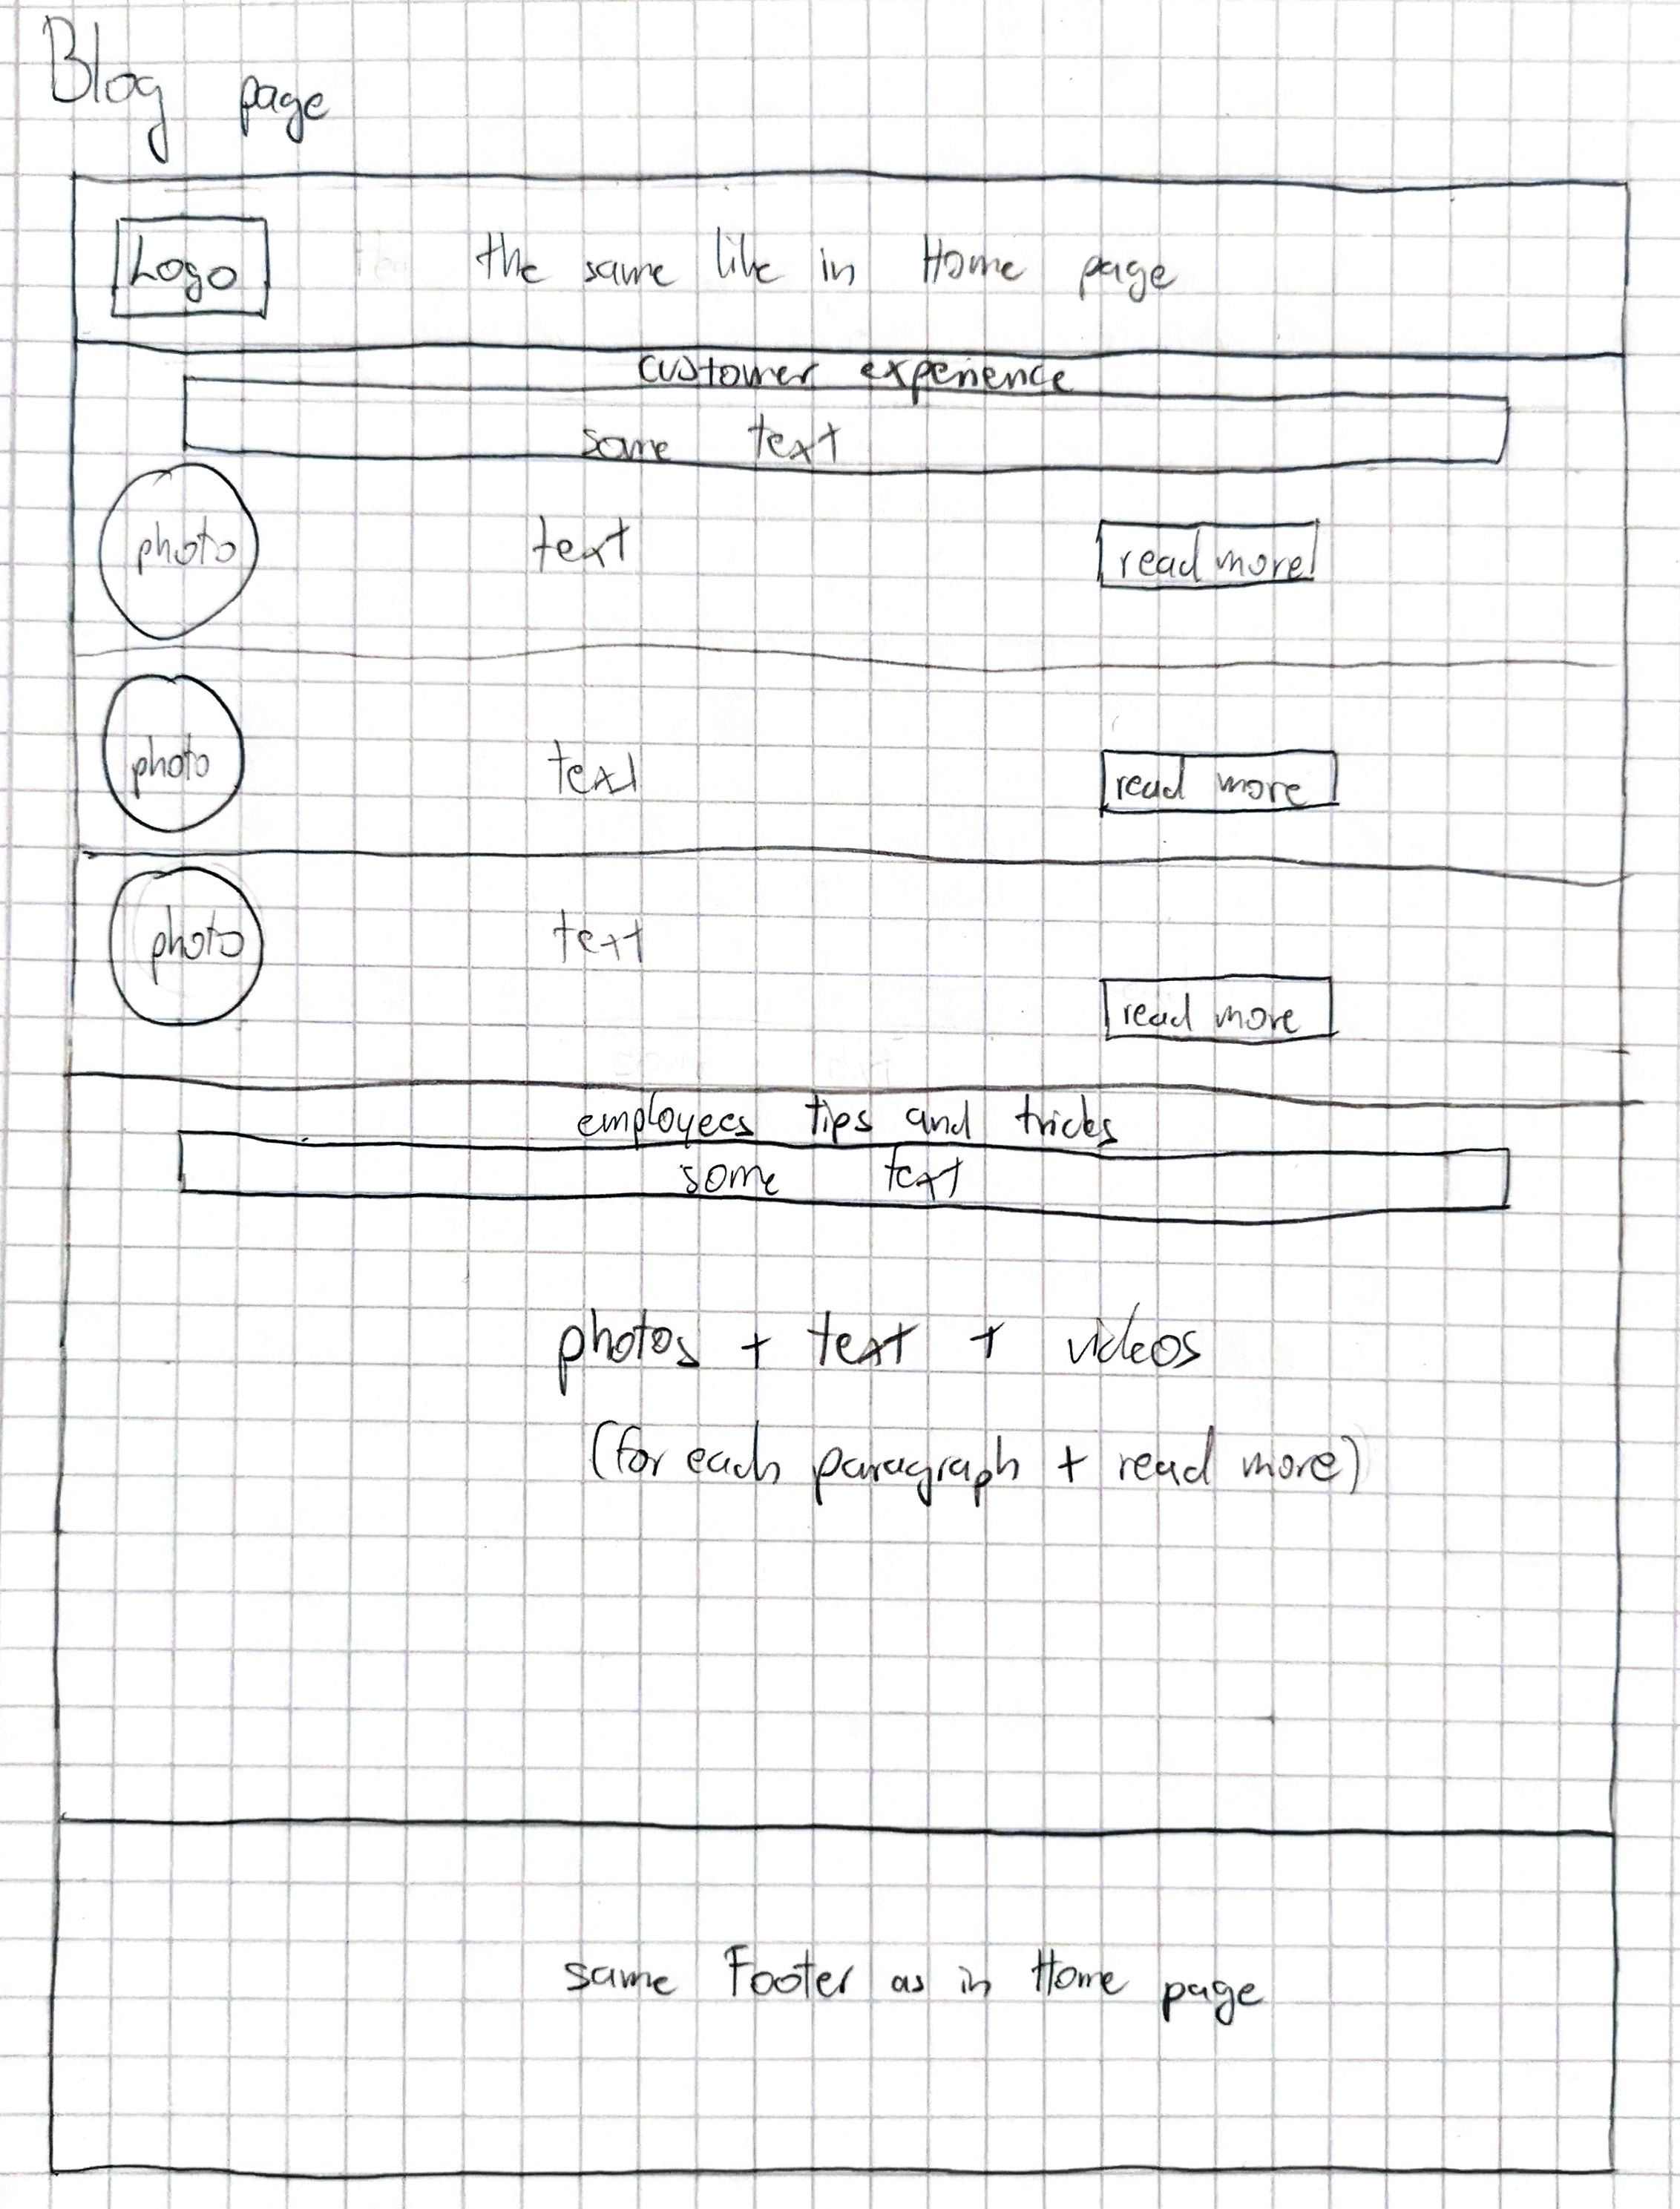 Blog page
Logo the same like in Home page
customer experience
some text
photo text read more
photo text read more
photo text
read more
employees tips and tricks
some text
photos + text + videos
(for each paragraph + read more)
same Footer as in Home page